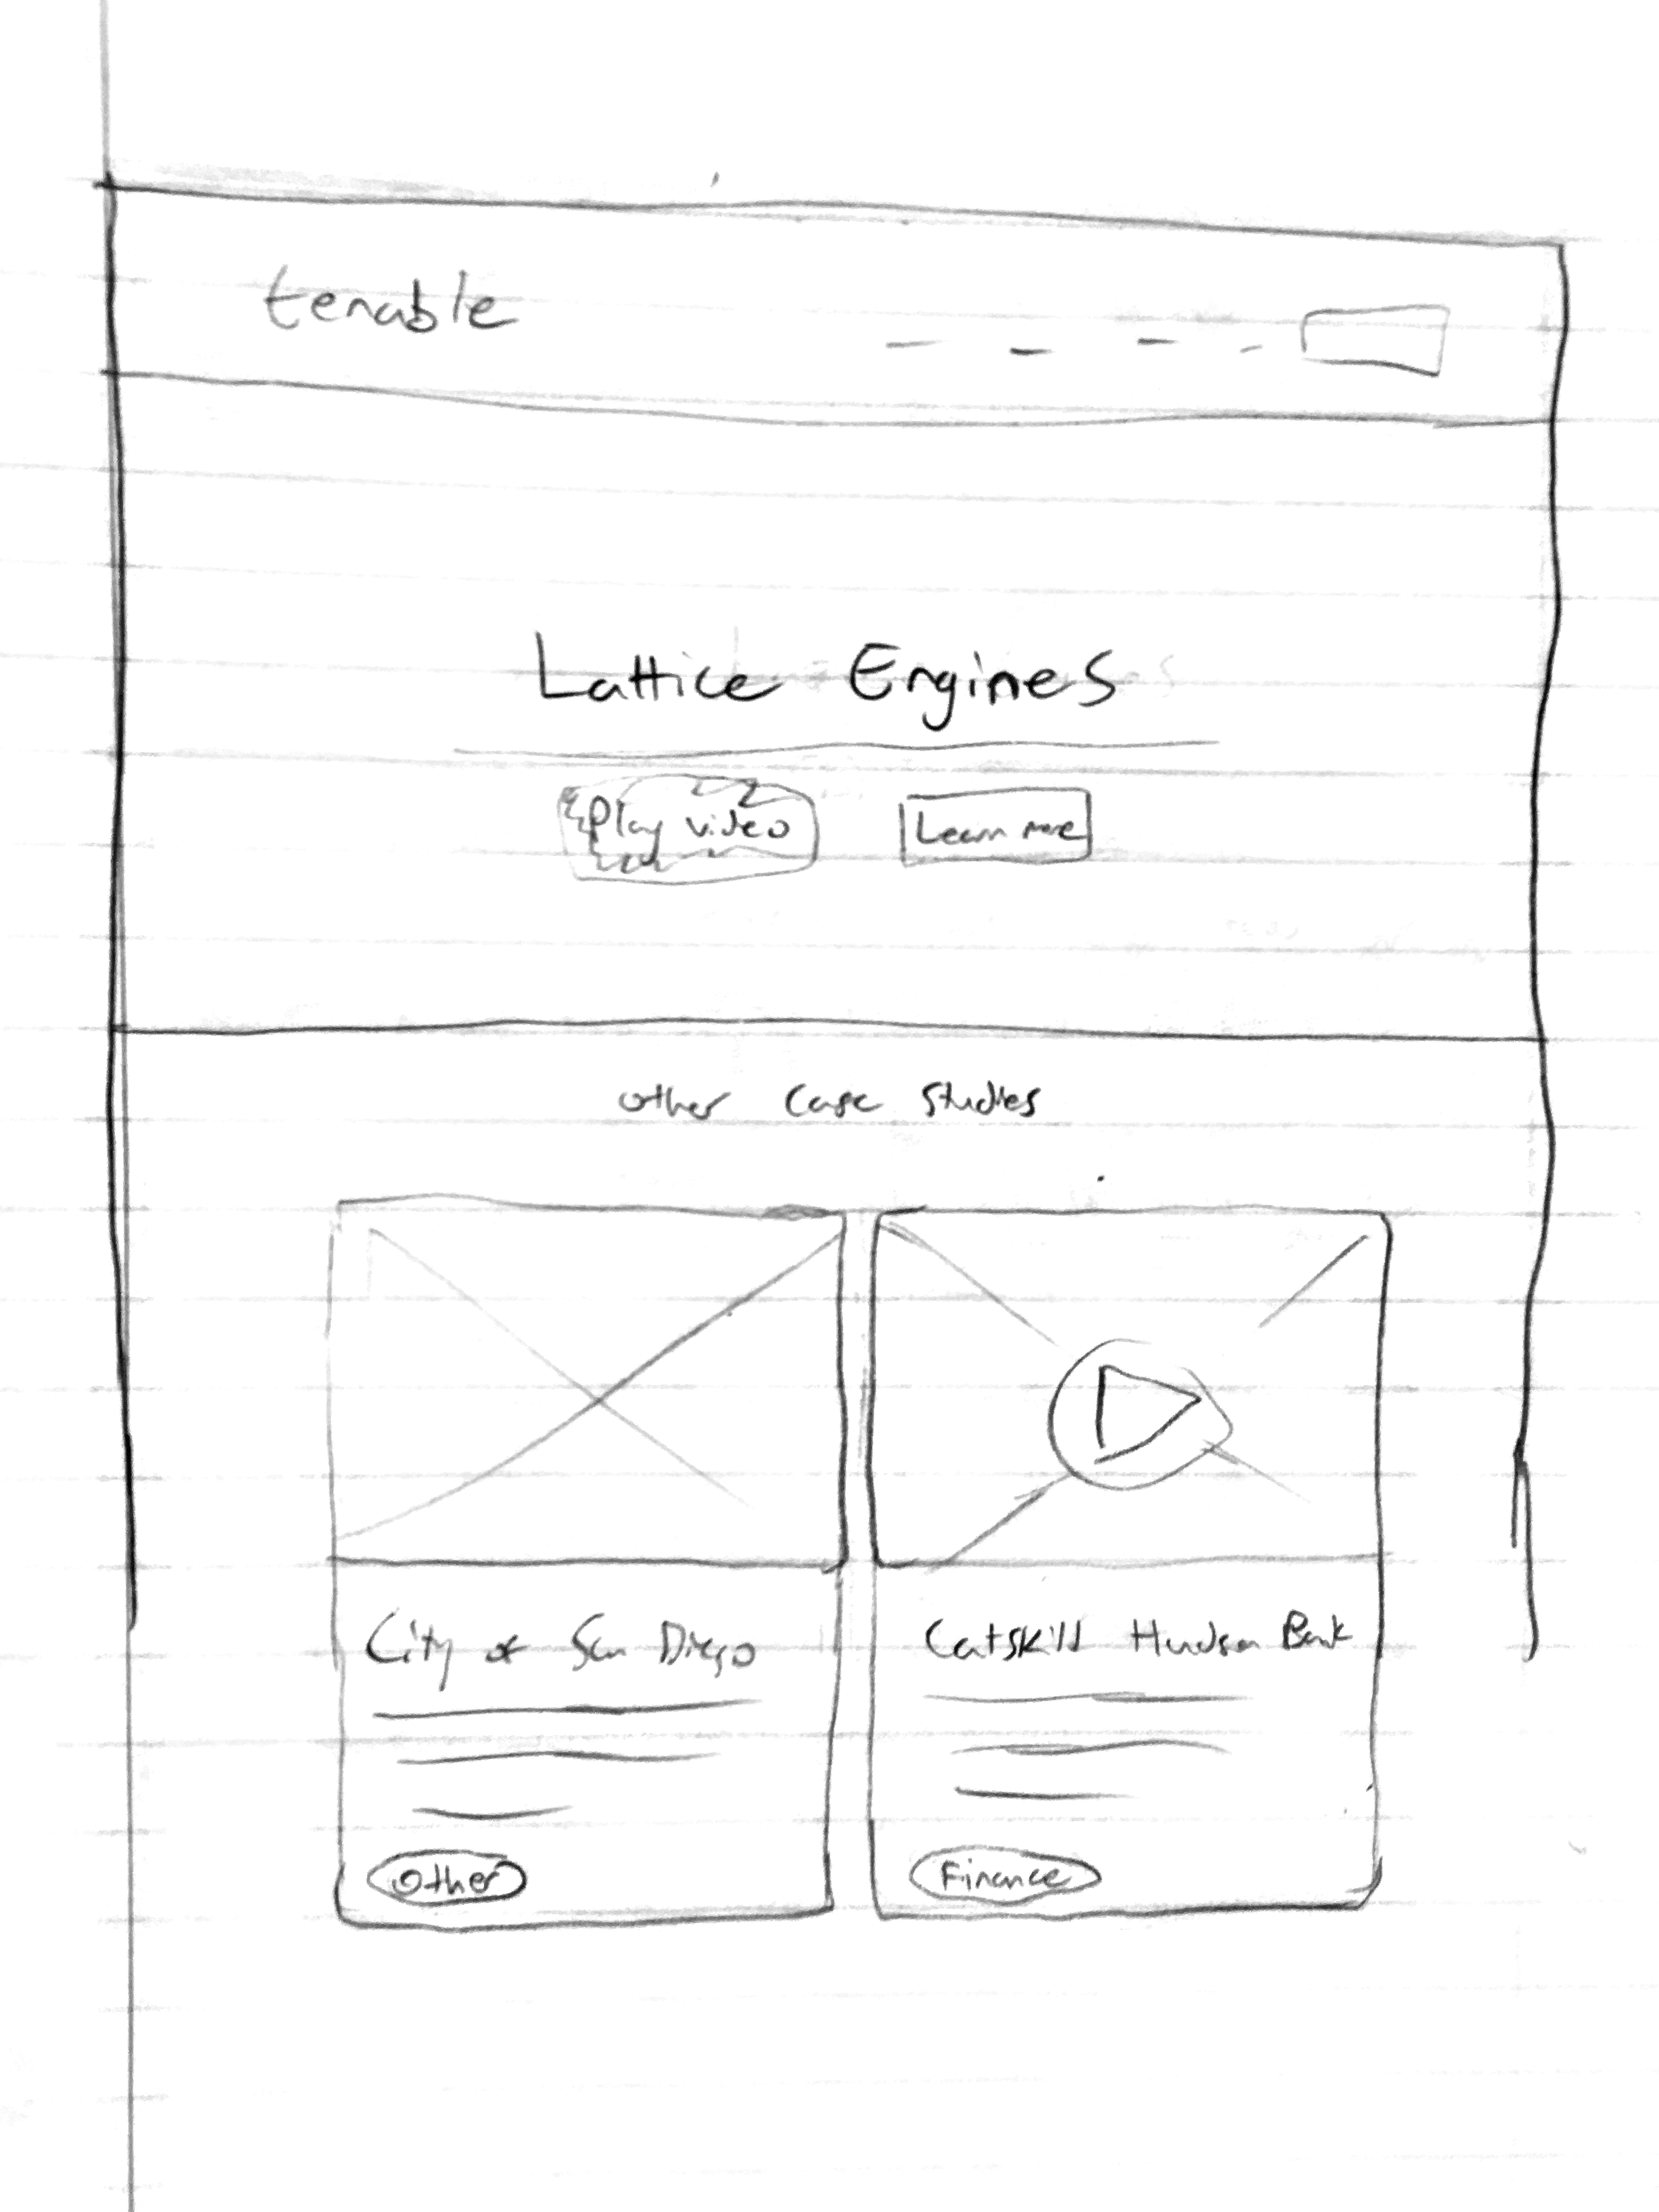 tenable
Lattice Engines
Play video
Learn more
other case studies
City of San Diego
Catskill Hudson Bank
Other
Finance